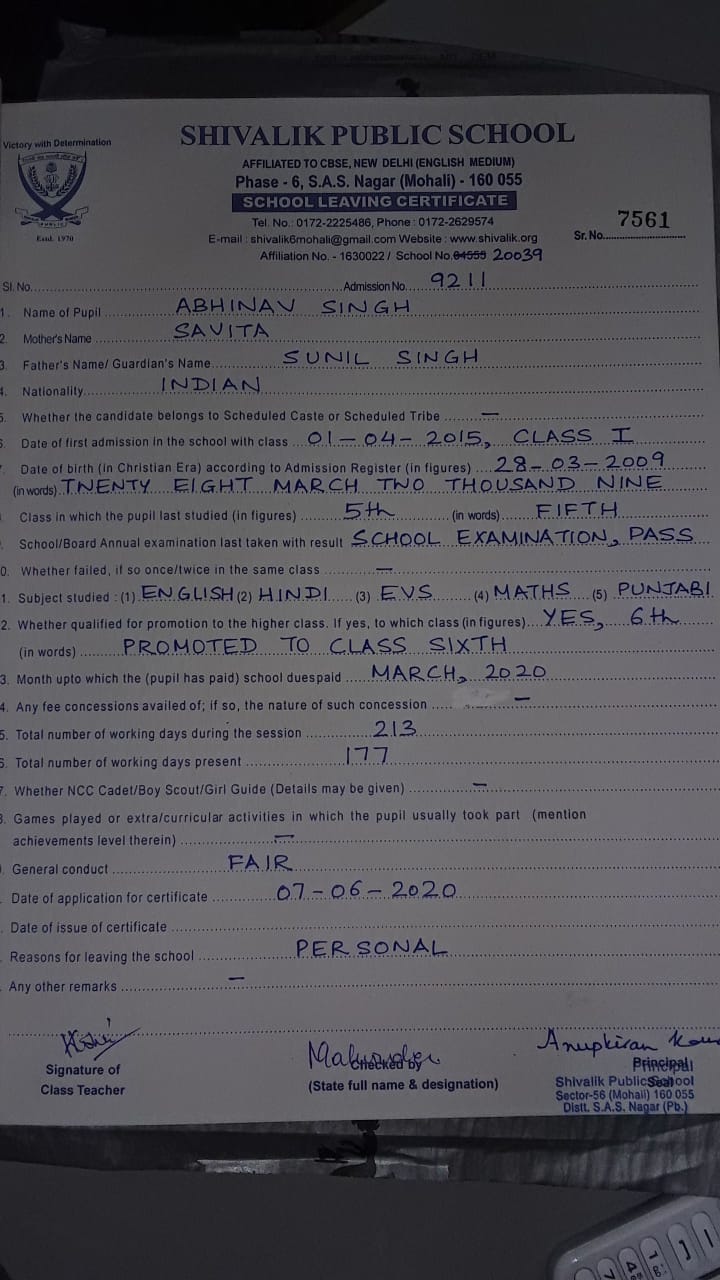 Victory with Determination
SHIVALIK PUBLIC SCHOOL
AFFILIATED TO CBSE, NEW DELHI (ENGLISH MEDIUM)
Phase - 6, S.A.S. Nagar (Mohali) - 160 055
SCHOOL LEAVING CERTIFICATE
Tel. No.: 0172-2225486, Phone : 0172-2629574
E-mail : shivalik6mohali@gmail.com Website : www.shivalik.org
Sr. No. 7561
Estd. 1970
Affiliation No. - 1630022 / School No. 04555 20039
Sl. No. Admission No. 9211
1. Name of Pupil ABHINAV SINGH
2. Mother's Name SAVITA
3. Father's Name/ Guardian's Name SUNIL SINGH
4. Nationality INDIAN
5. Whether the candidate belongs to Scheduled Caste or Scheduled Tribe —
6. Date of first admission in the school with class 01-04-2015, CLASS I
Date of birth (in Christian Era) according to Admission Register (in figures) 28-03-2009
(in words) TWENTY EIGHT MARCH TWO THOUSAND NINE
Class in which the pupil last studied (in figures) 5th (in words) FIFTH
School/Board Annual examination last taken with result SCHOOL EXAMINATION, PASS
0. Whether failed, if so once/twice in the same class —
1. Subject studied : (1) ENGLISH (2) HINDI (3) EVS (4) MATHS (5) PUNJABI
2. Whether qualified for promotion to the higher class. If yes, to which class (in figures) YES, 6th
(in words) PROMOTED TO CLASS SIXTH
3. Month upto which the (pupil has paid) school duespaid MARCH, 2020
4. Any fee concessions availed of; if so, the nature of such concession —
5. Total number of working days during the session 213
6. Total number of working days present 177
7. Whether NCC Cadet/Boy Scout/Girl Guide (Details may be given) —
8. Games played or extra/curricular activities in which the pupil usually took part (mention
achievements level therein) —
General conduct FAIR
Date of application for certificate 07-06-2020
Date of issue of certificate
Reasons for leaving the school PERSONAL
Any other remarks —
Anupkiran Kau
Signature of
Class Teacher
Checked by
(State full name & designation)
Principal
Seal
Shivalik Public School
Sector-56 (Mohali) 160 055
Distt. S.A.S. Nagar (Pb.)